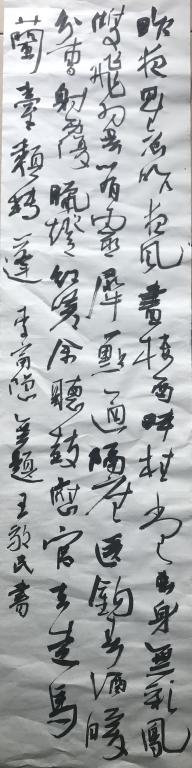 昨夜星辰昨夜風畫樓西畔桂堂東身無彩鳳
雙飛翼心有靈犀一點通隔座送鉤春酒暖
分曹射覆蠟燈紅嗟余聽鼓應官去走馬
蘭臺類轉蓬 李商隱無題 王敬民書